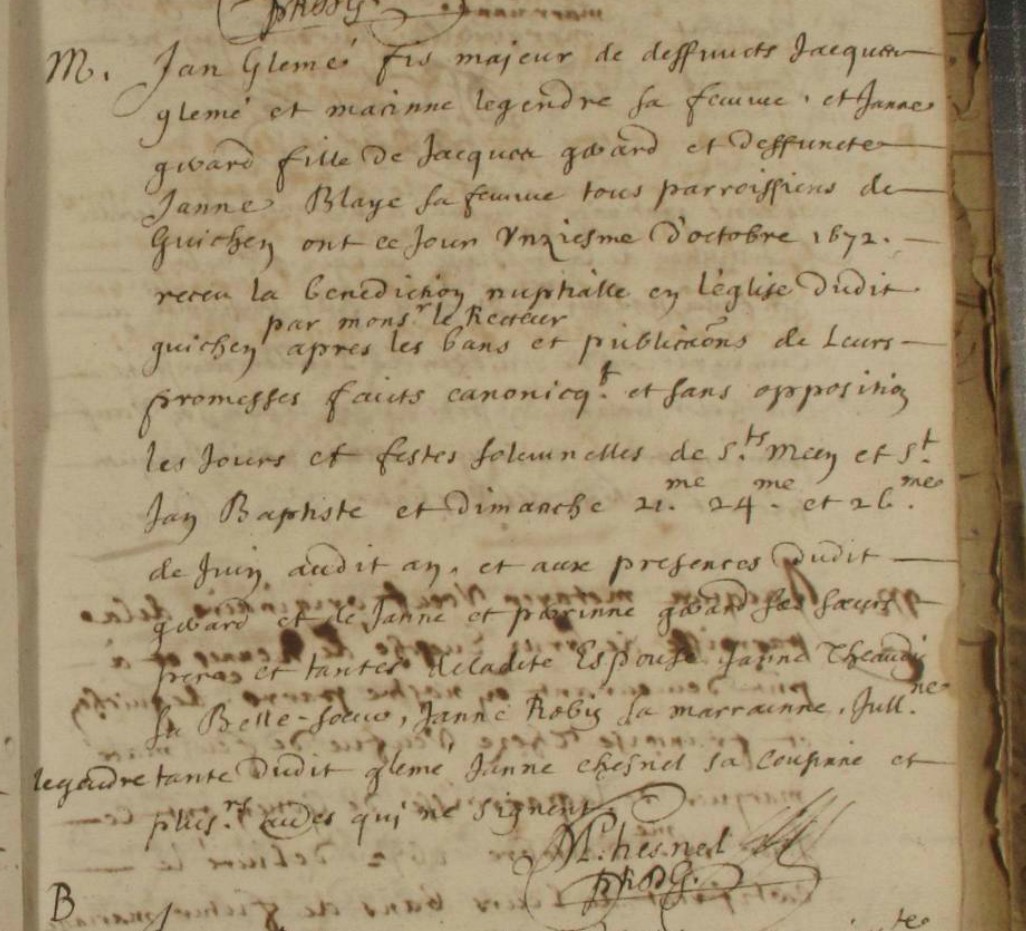 M. Jan Glemé fis majeur de deffuncts Jacques
glemé et macinne legendre sa femme, et Janne
gward fille de Jacques gward et deffuncte
Janne Blaye sa femme tous parroissiens de
Guichen ont ce Jour Vnziesme d'octobre 1672.
receu la benediction nuptialle en l'église dudit
par mons.r le Recteur
guichen apres les bans et publicãons de Leurs
promesses faicts canonicq.t et sans opposition
les Jours et festes solemnelles de S.ts Meen et S.t
Jan Baptiste et dimanche 21.me 24.me et 26.me
de Juin audit an, et aux presences dudit
gward et de Janne et perrinne gward ses sœurs
pere et tantes de ladite Espouse Janne Theaudin
sa Belle-soeur, Janne Robin sa marrainne, Jull.ne
legendre tante dudit glemé Janne chesnel sa Cousinne et
plus.rs au͠es qui ne signent
M. Chesnel
PRODG.
B